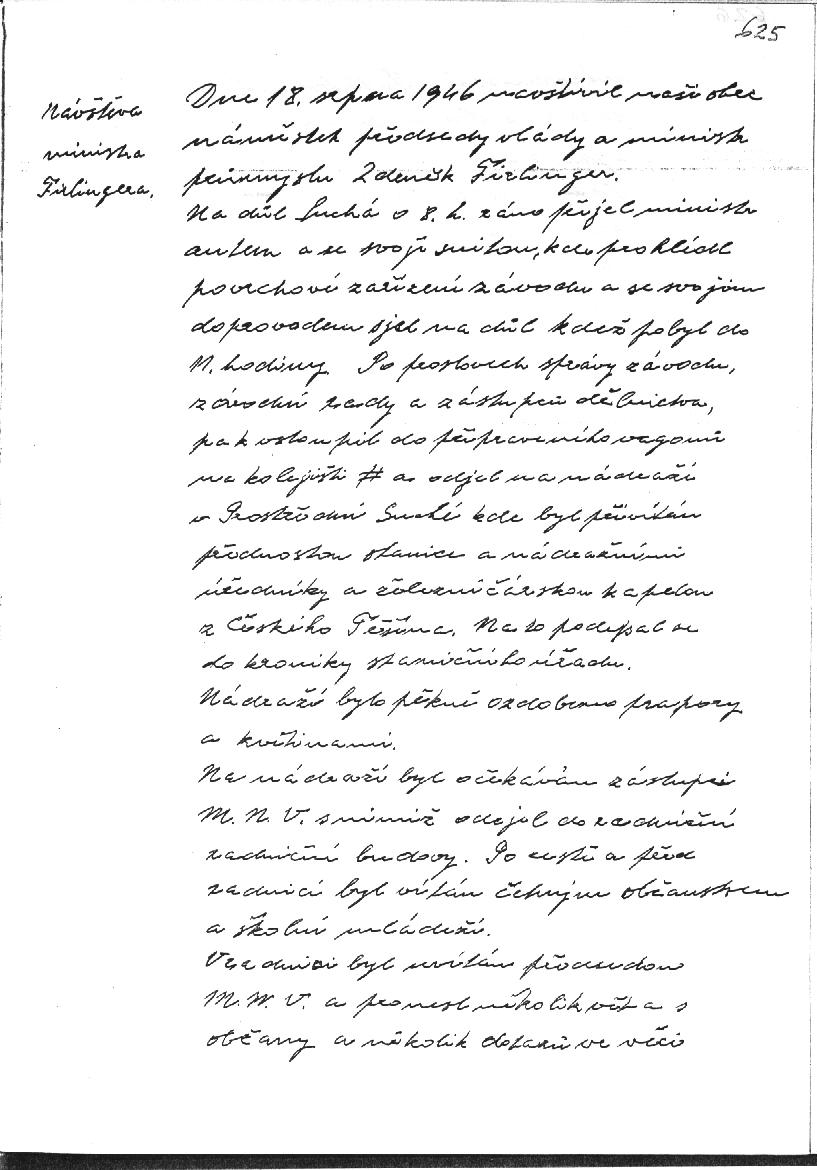 625
Návštěva
ministra
Firlingera.
Dne 18. srpna 1946 navštívil naši obec
náměstek předsedy vlády a ministr
průmyslu Zdeněk Firlinger.
Na důl Suchá o 8. h. ráno přijel ministr
autem a se svoji suitou, kde prohlédl
povrchové zařízení závodu a se svojim
doprovodem sjel na důl kdež pobyl do
11. hodiny. Po proslovech správy závodu,
závodní rady a zástupců dělnictva,
pak vstoupil do připraveného vagonu
na kolejišti a odjel na nádraží
v Prostřední Suché kde byl přivítán
přednostou stanice a nádražními
úředníky a železničářskou kapelou
z Českého Těšína. Na to podepsal se
do kroniky staničního úřadu.
Nádraží bylo pěkně ozdobeno prapory
a květinami.
Na nádraží byl očekáván zástupci
M. N. V. s nimiž odejel do radniční
radniční budovy. Po cestě a před
radnicí byl vítán četným občanstvem
a školní mládeží.
V radnici byl uvítán předsedou
M. N. V. a pronesl několik vět a s
občany a několik dotazů ve věci